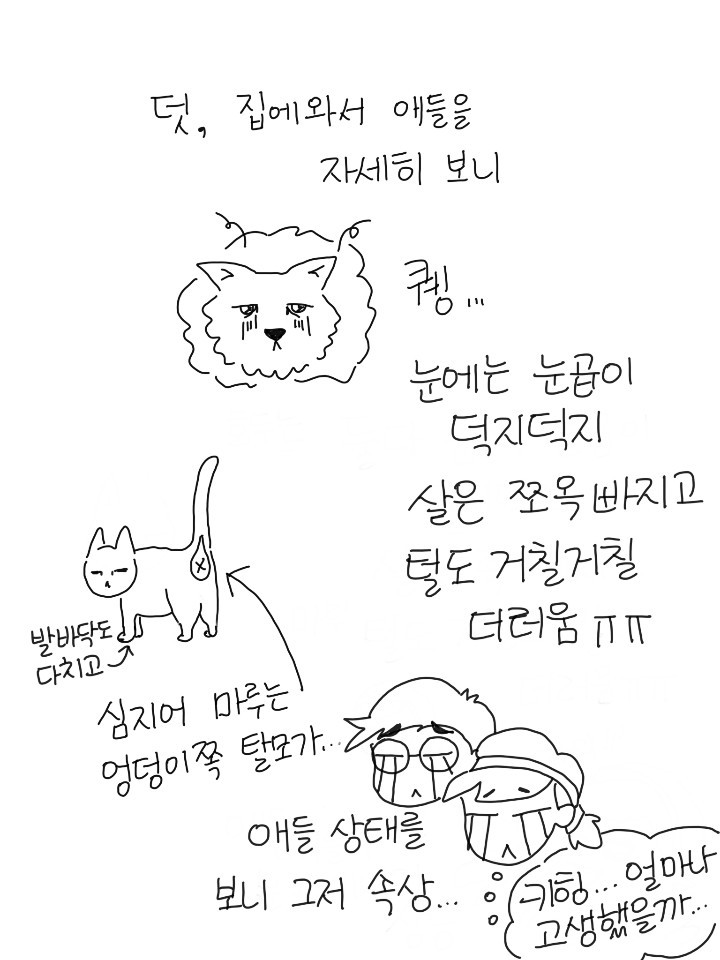 덧, 집에와서 애들을
자세히 보니
퀭...
눈에는 눈곱이
덕지덕지
살은 쪼옥 빠지고
털도 거칠거칠
더러움 ㅠㅠ
발바닥도
다치고
심지어 마루는
엉덩이쪽 탈모가...
애들 상태를
보니 그저 속상...
키힝... 얼마나
고생했을까...